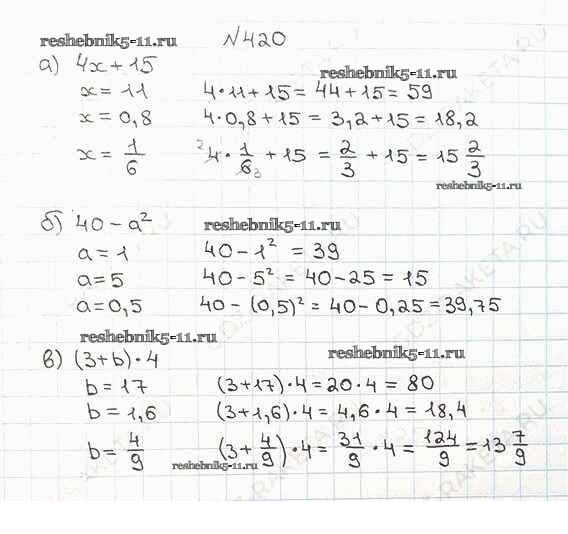 reshebnik5-11.ru №420
а) 4x + 15 reshebnik5-11.ru
x = 11 4•11 + 15 = 44 + 15 = 59
x = 0,8 4•0,8 + 15 = 3,2 + 15 = 18,2
x = 1/6 ²4• 1/6₃ + 15 = 2/3 + 15 = 15 2/3
reshebnik5-11.ru
б) 40 - a² reshebnik5-11.ru
a = 1 40 - 1² = 39
a = 5 40 - 5² = 40 - 25 = 15
a = 0,5 40 - (0,5)² = 40 - 0,25 = 39,75
reshebnik5-11.ru
в) (3+b)•4 reshebnik5-11.ru
b = 17 (3+17)•4 = 20•4 = 80
b = 1,6 (3+1,6)•4 = 4,6•4 = 18,4
b = 4/9 (3+ 4/9)•4 = 31/9 •4 = 124/9 = 13 7/9
reshebnik5-11.ru